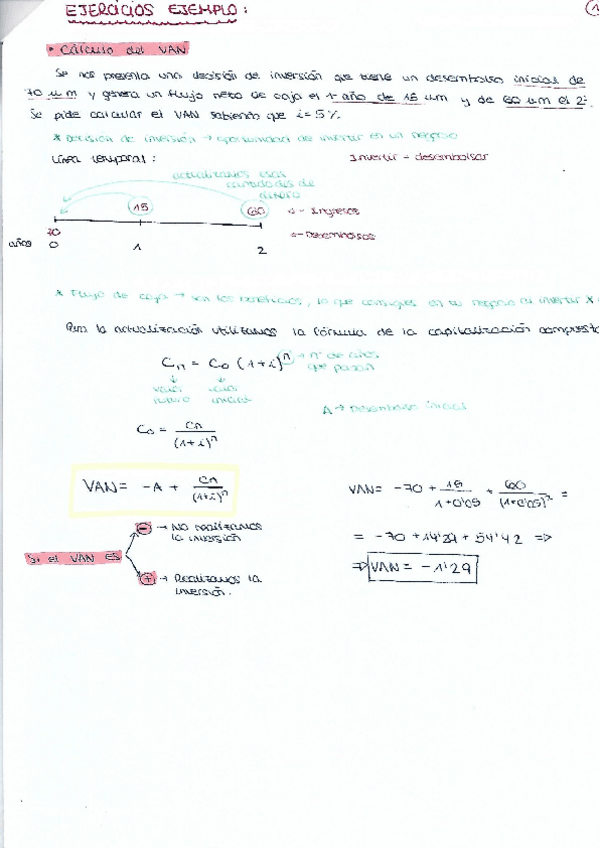 EJERCICIOS EJEMPLO:
1
* Cálculo del VAN
Se nos presenta una decisión de inversión que tiene un desembolso inicial de
70 u m y genera un flujo neto de caja el 1º año de 15 u.m y de 60 u m el 2º.
Se pide calcular el VAN sabiendo que i = 5%
* Decisión de inversión → oportunidad de invertir en un negocio
Línea temporal:
Invertir = desembolsar
actualizamos esas
cantidades de
dinero
15
60
△ - Ingresos
▽ - Desembolsos
70
años 0 1 2
* Flujo de caja → son los beneficios, lo que consigues en tu negocio al invertir X
Para la actualización utilizamos la fórmula de la capitalización compuesta
Cn = C0 (1+i)^n → nº de años
que pasan
valor
futuro
valor
inicial
A → Desembolso inicial
C0 = Cn / (1+i)^n
VAN = -A + Cn / (1+i)^n
VAN = -70 + 15 / 1+0'05 + 60 / (1+0'05)^2 =
= -70 + 14'29 + 54'42 =>
=> VAN = -1'29
Si el VAN es
- → NO realizamos
la inversión
+ → Realizamos la
inversión.